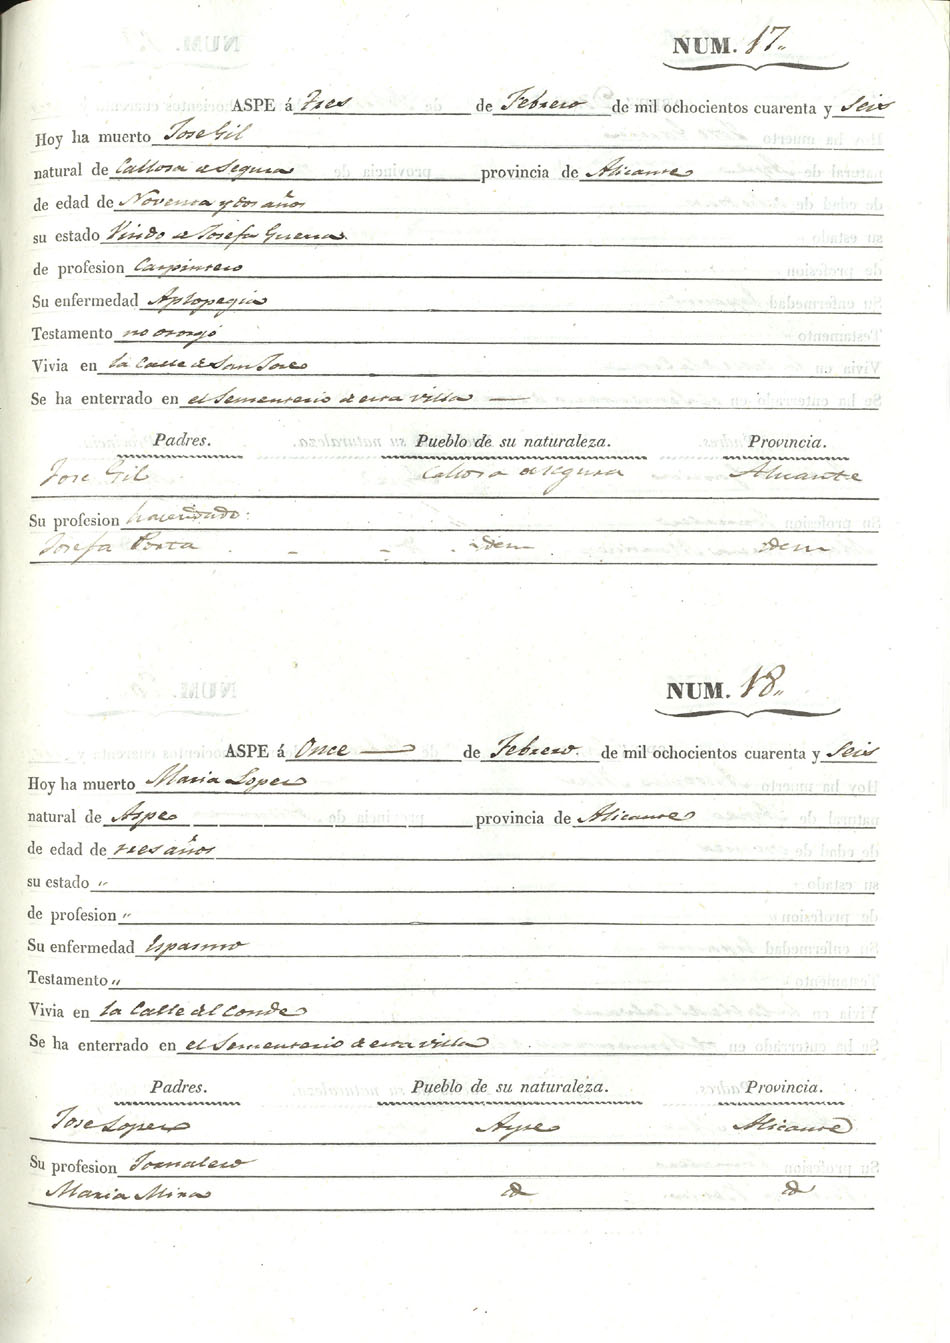 NUM. 17.
ASPE á Tres de Febrero de mil ochocientos cuarenta y Seis
Hoy ha muerto Jose Gil
natural de Callosa de Segura provincia de Alicante
de edad de Noventa y dos años
su estado Viudo de Josefa Guerra.
de profesion Carpintero
Su enfermedad Aplopegia
Testamento no otorgó
Vivia en la Calle de San Jose
Se ha enterrado en el Sementerio de esta villa —
Padres. Pueblo de su naturaleza. Provincia.
Jose Gil Callosa de segura Alicante
Su profesion hacendado:
Josefa Porta . - - . - idem . idem
NUM. 18.
ASPE á Once — de Febrero. de mil ochocientos cuarenta y Seis
Hoy ha muerto Maria Lopez
natural de Aspe provincia de Alicante
de edad de tres años
su estado "
de profesion "
Su enfermedad Espasmo
Testamento "
Vivia en la Calle del Conde
Se ha enterrado en el Sementerio de esta villa
Padres. Pueblo de su naturaleza. Provincia.
Jose Lopez Aspe Alicante
Su profesion Jornalero
Maria Mira id id